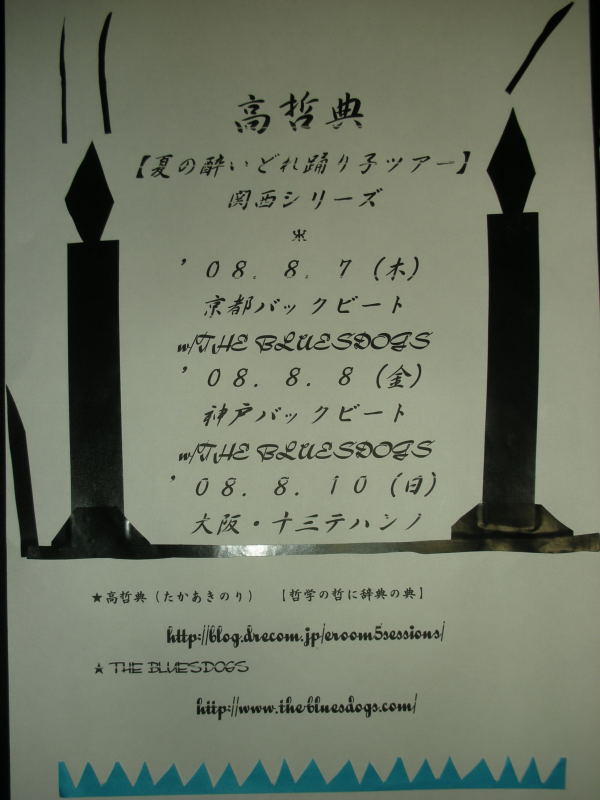 高哲典
【夏の酔いどれ踊り子ツアー】
関西シリーズ
※
’08.8.7（木）
京都バックビート
w/THE BLUESDOGS
’08.8.8（金）
神戸バックビート
w/THE BLUESDOGS
’08.8.10（日）
大阪・十三テハンノ
★高哲典（たかあきのり）　【哲学の哲に辞典の典】
http://blog.drecom.jp/eroom5sessions/
★ THE BLUESDOGS
http://www.thebluesdogs.com/